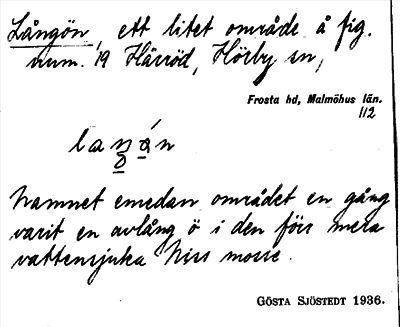 Långön, ett litet område å fig.
num. 19 Hårröd, Hörby sn,
Frosta hd, Malmöhus län.
112
Namnet emedan området en gång
varit en avlång ö i den förr mera
vattensjuka mosse.
GÖSTA SJÖSTEDT 1936.